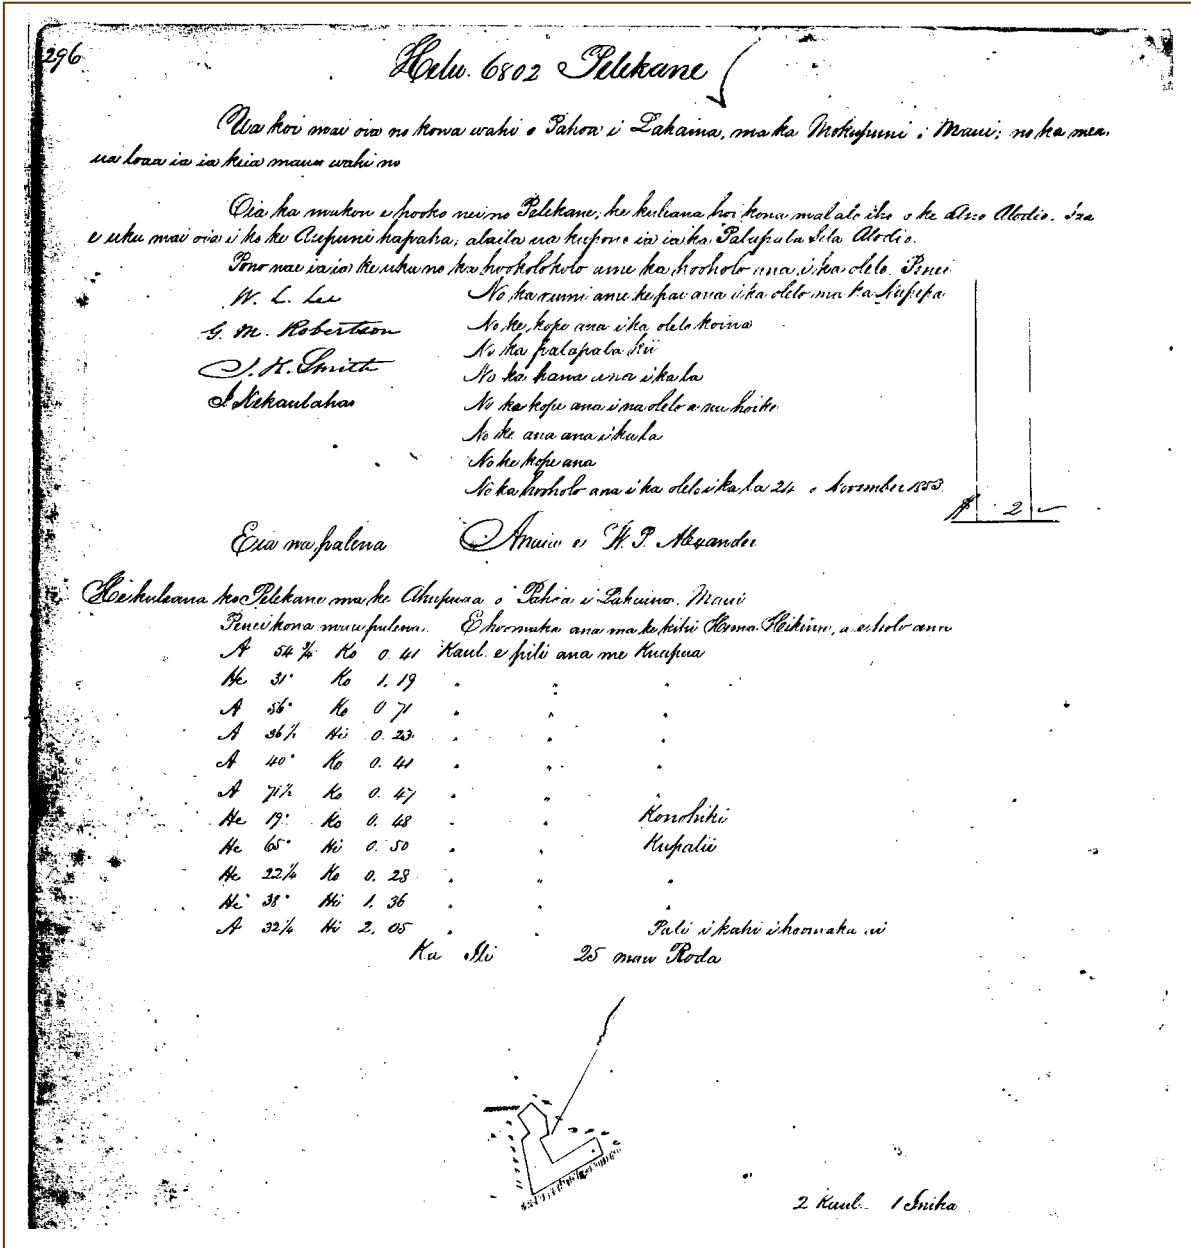 296
Helu. 6802 Pelekane
Ua koi mai oia no kona wahi o Pahoa i Lahaina, ma ka Mokupuni o Maui; no ka mea,
ua loaa ia ia keia mau wahi no
Oia ka mukou e hooko nei no Pelekane, he kuleana hoi kona malalo iho o ke Ano Alodio. Ina
e uku mai oia i ko ke Aupuni hapaha, alaila ua kupono ia ia ka Palapala Sila Alodio.
Pono nae ia ia ke uku no ka hookolokolo ame ka hooholo ana i ka olelo. Penei
W. L. Lee No ka rumi ame ke pai ana i ka olelo ma ka Nupepa
G. M. Robertson No ke kope ana i ka olelo koina
J. H. Smith No ka palapala kii
J Kekaulahao No ka hana ana i ka la
No ke kope ana i na olelo a na hoike
No ke ana ana i ka la
No ke kope ana
No ka hooholo ana i ka olelo i ka la 24 o November 1853
$ 2
Eia na palena Anaia e W. P. Alexander
He kuleana ko Pelekane ma ke Ahupuaa o Pahoa i Lahaina. Maui
Penei kona mau palena. E hoomaka ana ma ke kihi Hema Hikina, a e holo ana
A 54 ¾ Ko 0.41 Kaul. e pili ana me Kuapua
He 31° Ko 1.19 " " "
A 56° Ko 0 71 " " "
A 36½ Hi 0.23 " " "
A 40° Ko 0.41 " " "
A 71½ Ko 0.47 " " "
He 19° Ko 0.48 " " Konohiki
He 65° Hi 0.50 " " Kupalii
He 22¼ Ko 0.28 " " "
He 38° Hi 1.36 " " "
A 32¼ Hi 2.05 " " Pali i kahi i hoomaka ai
Ka Ili 25 mau Roda
2 Kaul. 1 Iniha